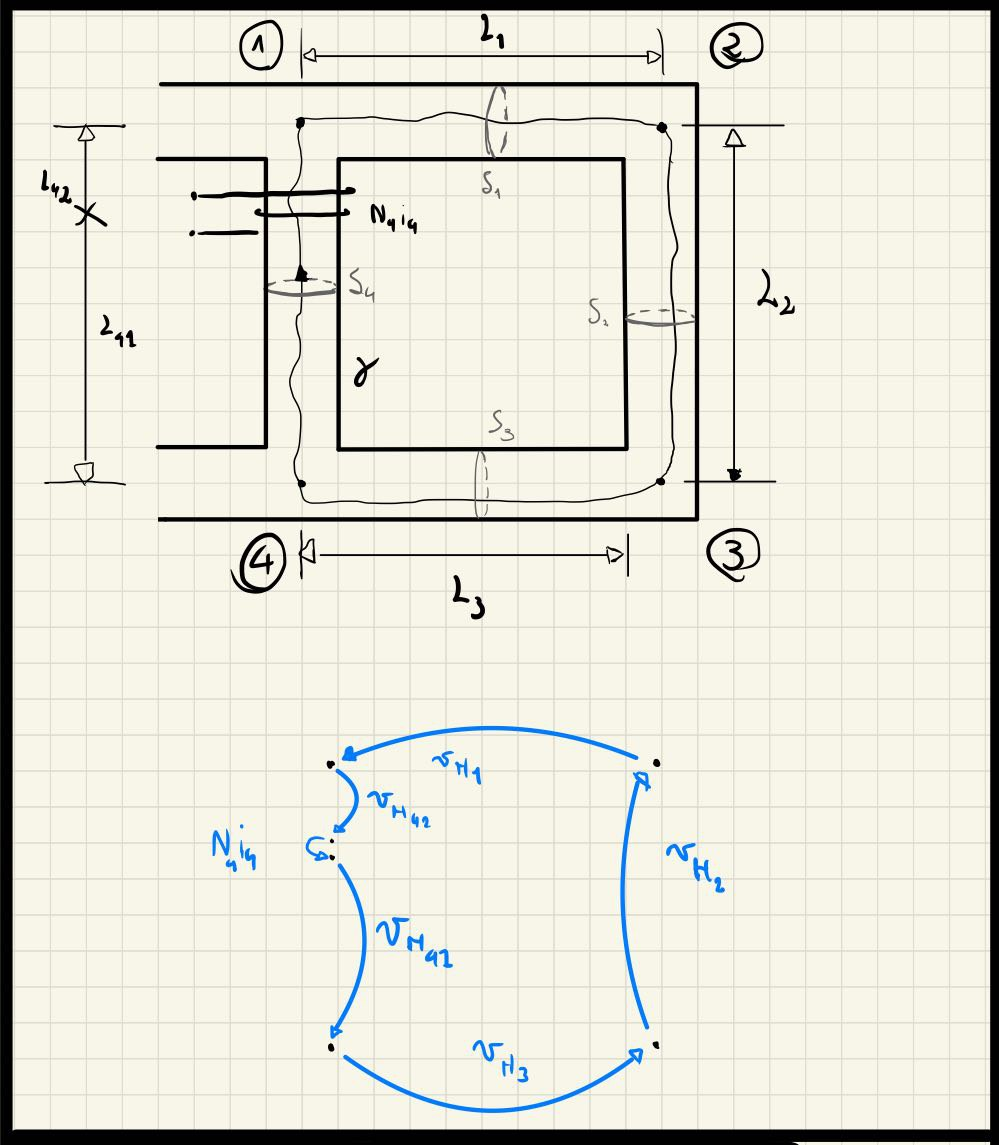 1
L₁
2
L₄₂
S₁
N₄i₄
S₄
L₂
L₄₁
γ
S₃
4
3
L₃
v_H₁
v_H₄₂
N₄i₄
v_H₂
v_H₄₁
v_H₃